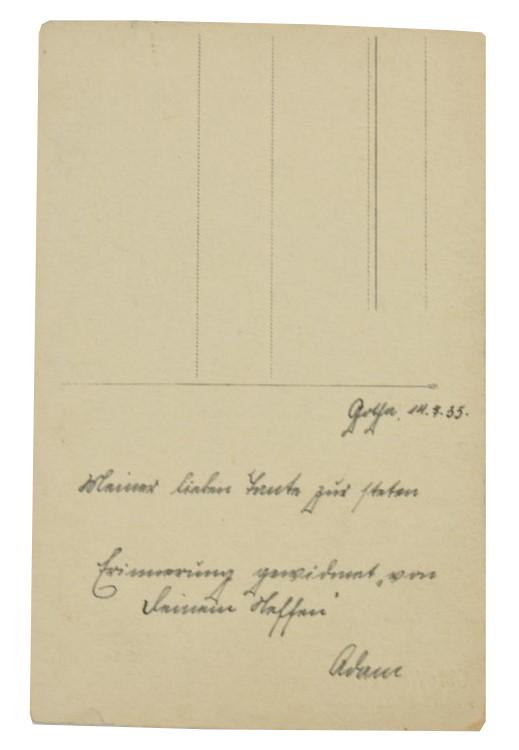 Gotha, 14.7.35.
Meiner lieben Tante zur steten
Erinnerung gewidmet „von
Deinem Neffen“
Adam